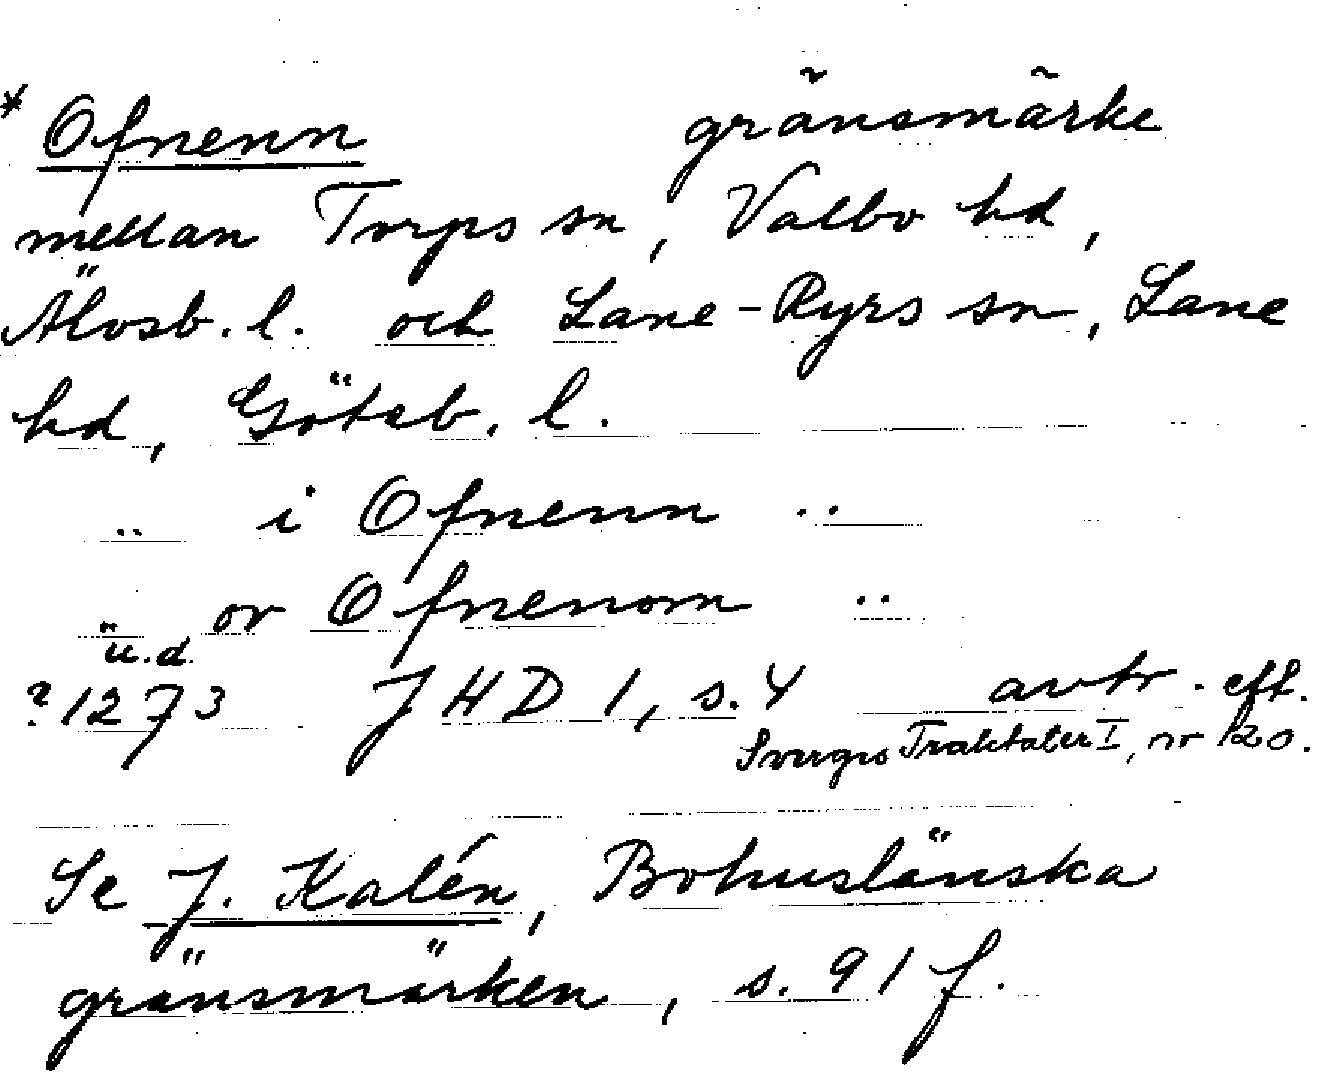 * Ofnenn gränsmärke
mellan Torps sn, Valbo hd,
Älvsb. l. och Lane-Ryrs sn, Lane
hd, Göteb. l.
.. i Ofnenn ..
.. or Ofnenom ..
u.d.
? 1273 JHD 1, s. 4 avtr. eft.
Sverges Traktater I, nr 120.
Se J. Kalén, Bohuslänska
gränsmärken, s. 91 f.